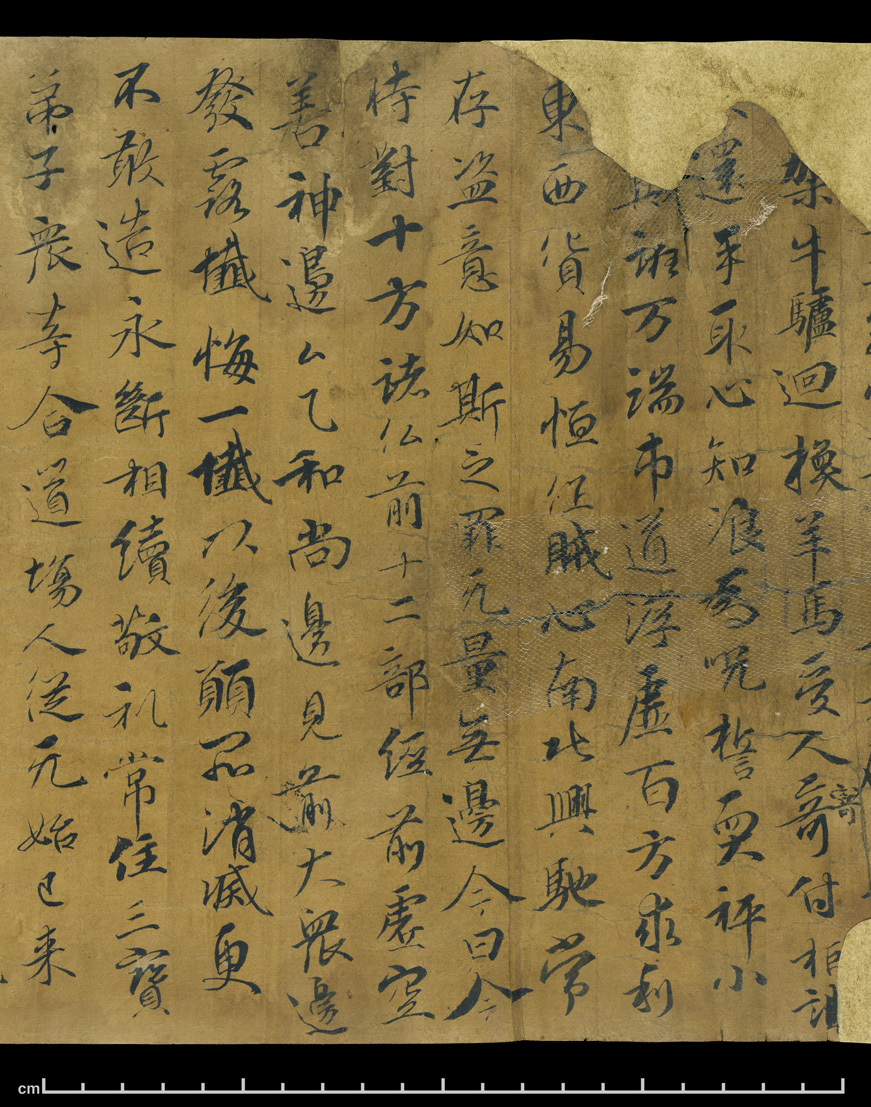 架牛驢迴換羊馬受人哥寄付拒
還手取心知浪為呪誓秤小
誑万端市道浮虛百方求利
東西貨易恒但賊心南北興馳常
存盜意如斯之罪无量無邊今日今
時對十方諸仏前十二部經前虛空
善神邊厶乙和尚邊見前大眾邊
發露懺悔一懺以後願罪消滅更
不敢造永斷相續敬礼常住三寶
弟子眾等合道場人從无始已来
cm